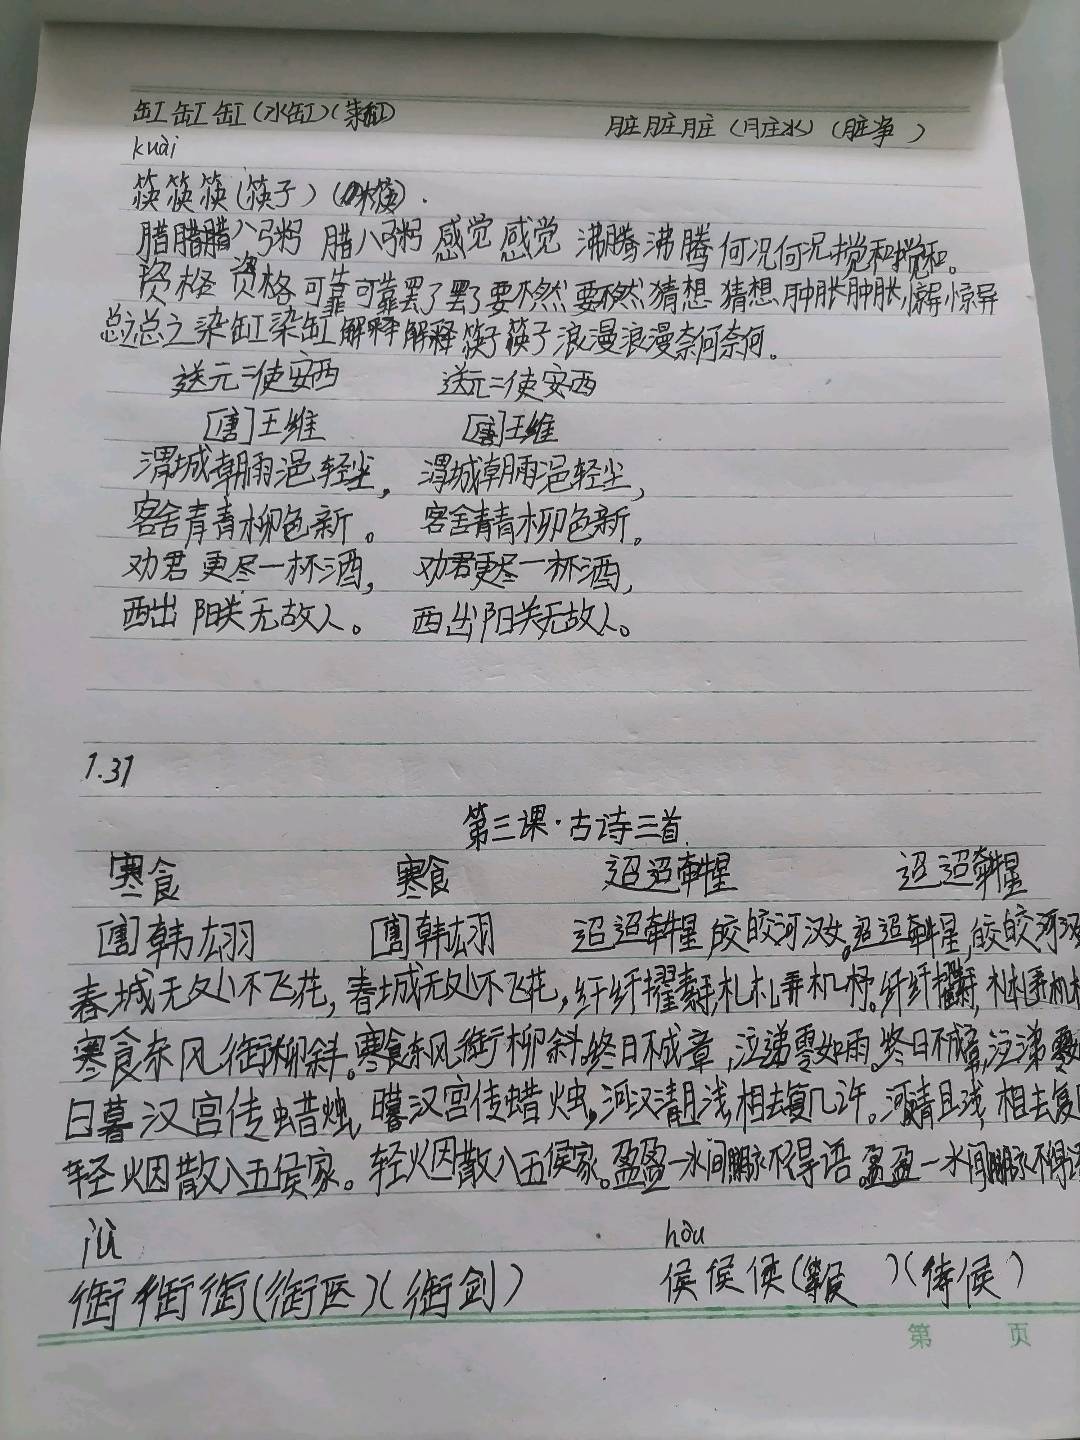 缸缸缸(水缸)(染缸) 脏脏脏(脏水)(脏净)
kuài
筷筷筷(筷子)
腊腊腊八粥 腊八粥 感觉 感觉 沸腾沸腾何况何况搅和搅和。
资格 资格可靠可靠罢了罢了要不然要不然猜想 猜想肿胀肿胀惊异惊异
总之总之染缸染缸解释解释筷子筷子浪漫浪漫奈何奈何。
送元二使安西 送元二使安西
[唐]王维 [唐]王维
渭城朝雨浥轻尘, 渭城朝雨浥轻尘,
客舍青青柳色新。 客舍青青柳色新。
劝君更尽一杯酒, 劝君更尽一杯酒,
西出阳关无故人。 西出阳关无故人。
1.31
第三课·古诗三首
寒食 寒食 迢迢牵牛星 迢迢牵牛星
[唐]韩翃 [唐]韩翃 迢迢牵牛星,皎皎河汉女。迢迢牵牛星,皎皎河汉
春城无处不飞花,春城无处不飞花,纤纤擢素手,札札弄机杼。纤纤擢素手,札札弄机杼
寒食东风御柳斜。寒食东风御柳斜。终日不成章,泣涕零如雨。终日不成章,泣涕零如
日暮汉宫传蜡烛,日暮汉宫传蜡烛,河汉清且浅,相去复几许。河汉清且浅,相去复几
轻烟散入五侯家。轻烟散入五侯家。盈盈一水间,脉脉不得语。盈盈一水间,脉脉不得语
hòu
侯侯侯( )(侍候)